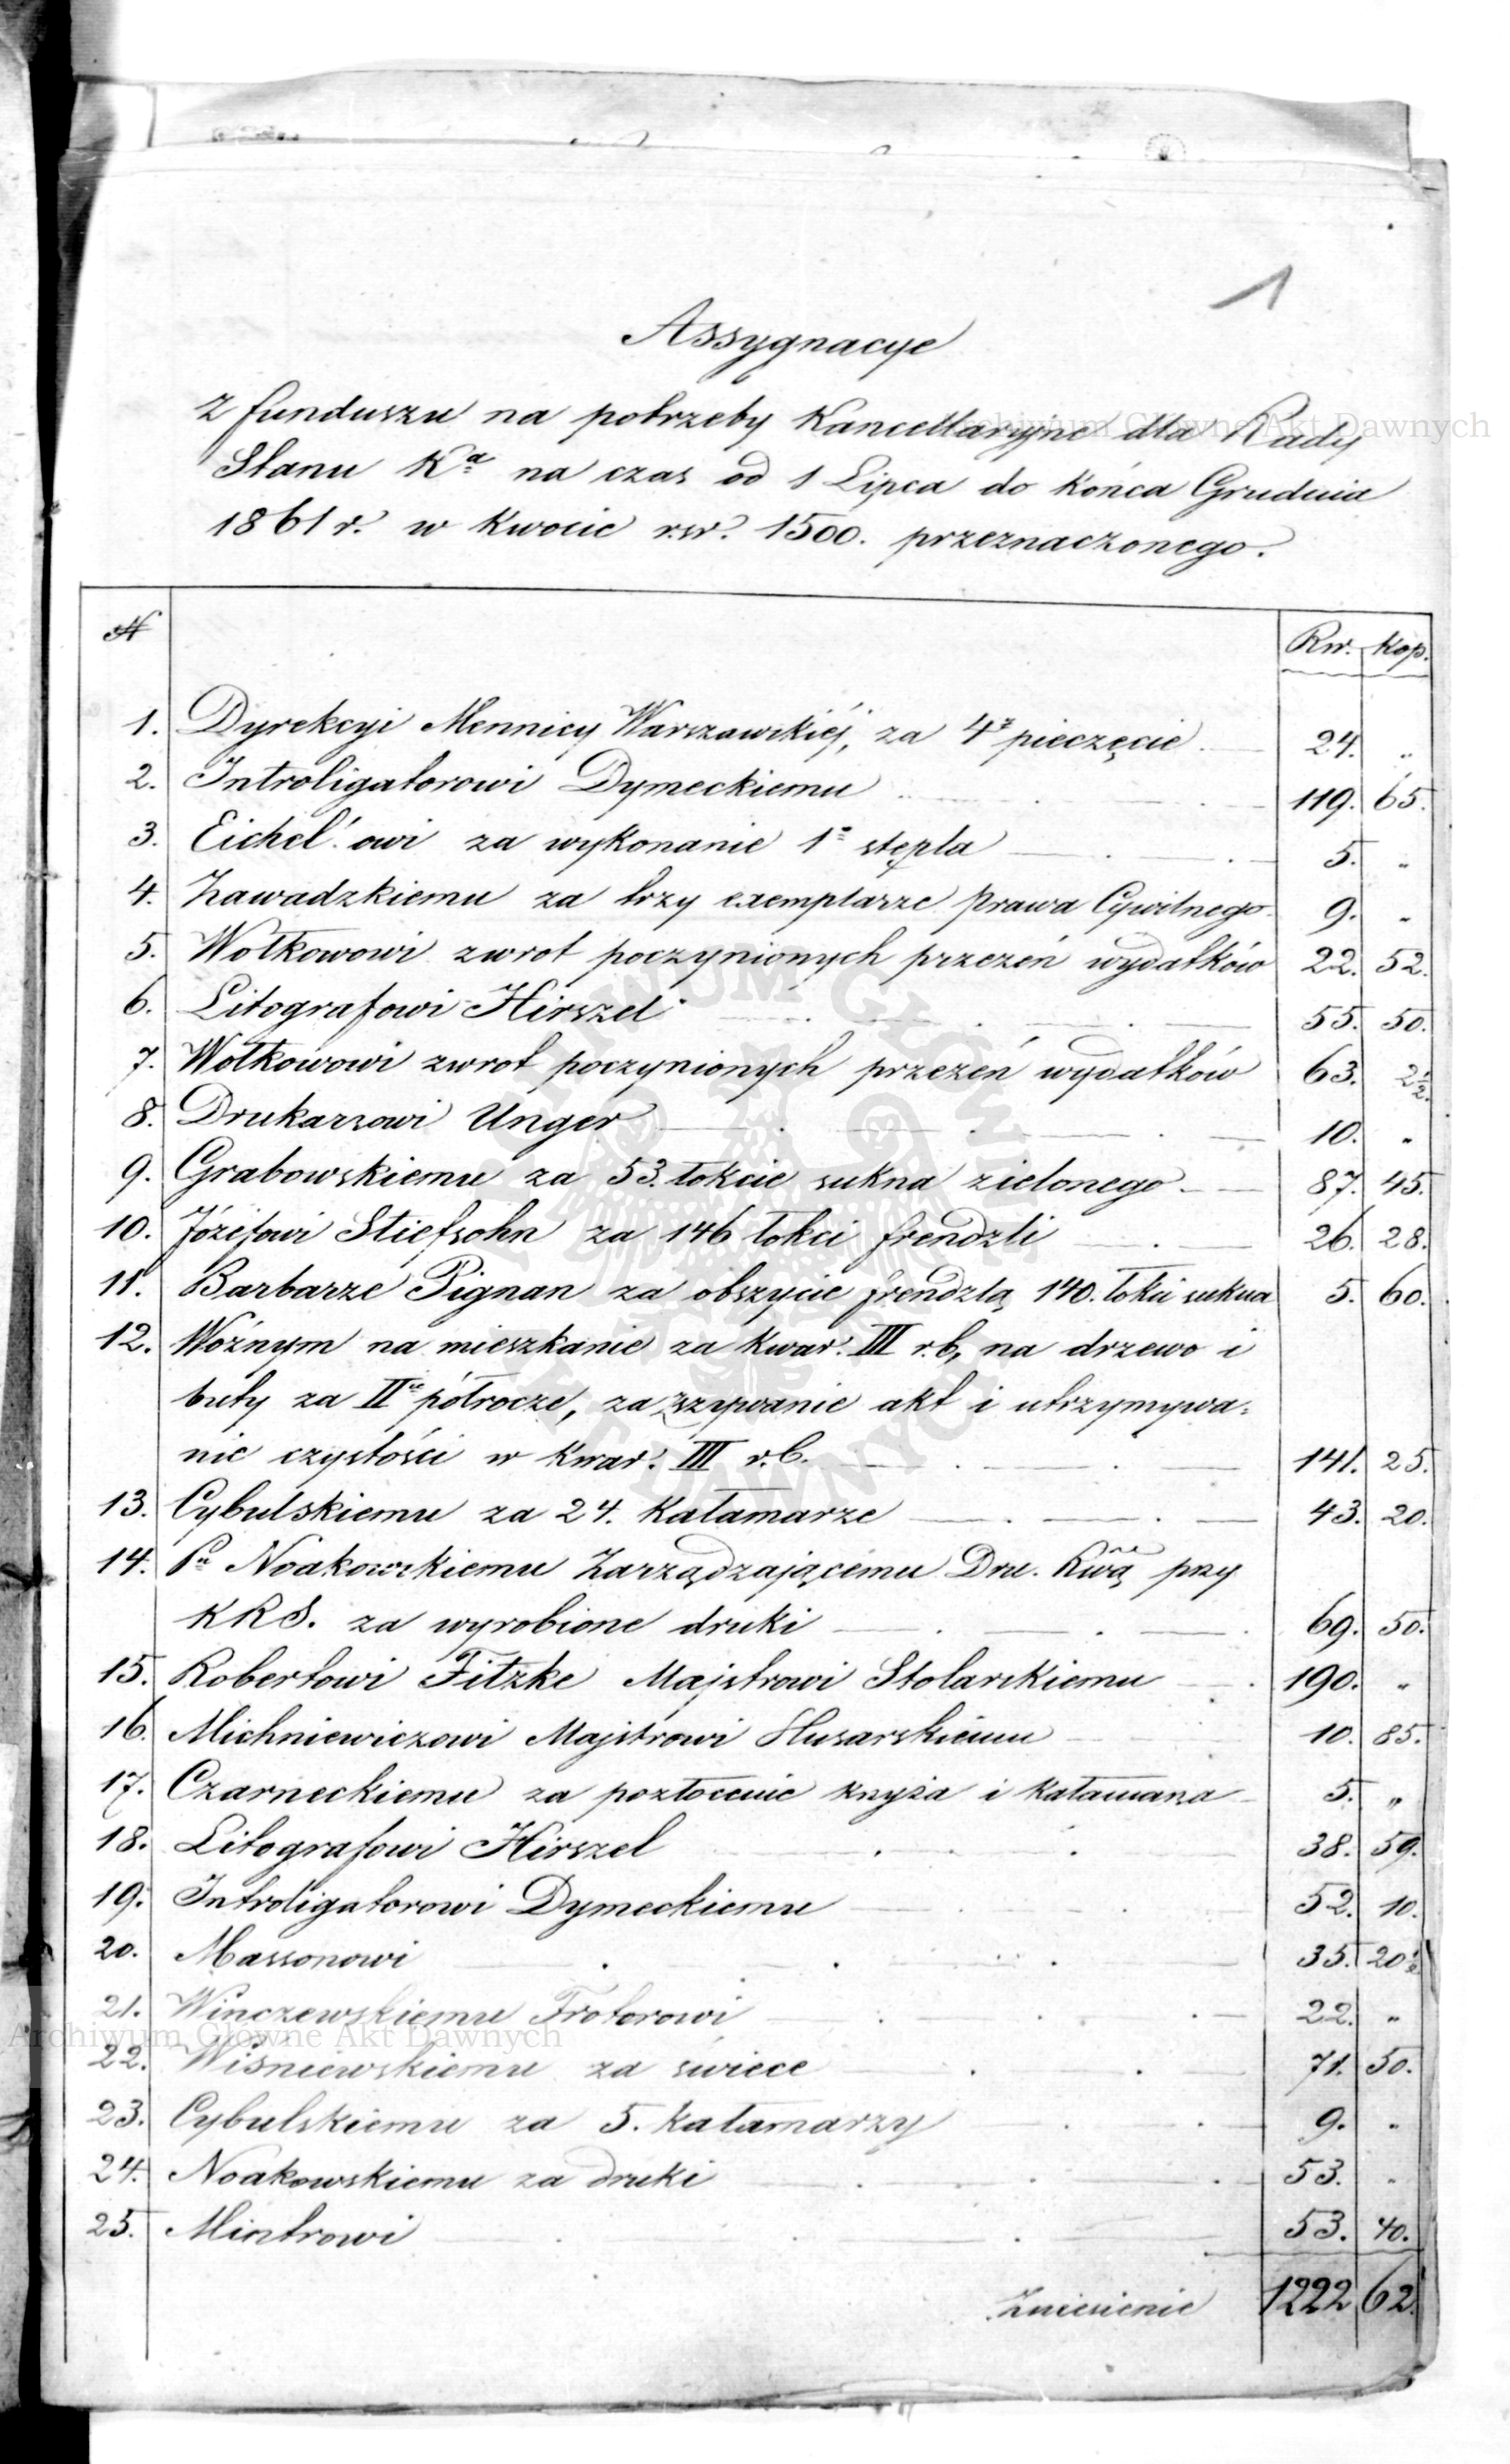 1
Assygnacye
z funduszu na potrzeby Kancellaryjne dla Rady
Stanu Kª na czas od 1 Lipca do końca Grudnia
1861 r. w kwocie rsr. 1500. przeznaczonego.
N Rsr. Kop.
1. Dyrekcyi Mennicy Warszawskiéj, za 4 pieczęcie 24. "
2. Introligatorowi Dymeckiemu 119. 65.
3. Eichel'owi za wykonanie 1º stępla 5. "
4. Zawadzkiemu za trzy exemplarze Prawa Cywilnego 9. "
5. Wołkowowi zwrot poczynionych przezeń wydatków 22. 52.
6. Litografowi Hirszel 55. 50.
7. Wołkowowi zwrot poczynionych przezeń wydatków 63. 2½.
8. Drukarzowi Unger 10. "
9. Grabowskiemu za 53. łokcie sukna zielonego 87. 45.
10. Józefowi Stiefsohn za 146 łokci frendzli 26. 28.
11. Barbarze Pignan za obszycie frendzlą 140. łokci sukna 5. 60.
12. Woźnym na mieszkanie za kwar. III r.b, na drzewo i
buty za II półrocze, za zszywanie akt i utrzymywa=
nie czystości w kwar. III r.b. 141. 25.
13. Cybulskiemu za 24. kałamarze 43. 20.
14. Pu Noakowskiemu Zarządzającemu Dru. Rwą przy
KRS. za wyrobione druki 69. 50.
15. Robertowi Fitzke Majstrowi Stolarskiemu 190. "
16. Michniewiczowi Majstrowi Slusarskiemu 10. 85.
17. Czarneckiemu za pozłocenie krzyża i kałamarza 5. "
18. Litografowi Hirszel 38. 59.
19. Introligatorowi Dymeckiemu 52. 10.
20. Massonowi 35. 20½
21. Winczewskiemu Froterowi 22. "
22. Wiśniewskiemu za świece 71. 50.
23. Cybulskiemu za 5. kałamarzy 9. "
24. Noakowskiemu za druki 53. "
25. Mintrowi 53. 40.
Zniesienie 1222 62.
Archiwum Główne Akt Dawnych
Archiwum Główne Akt Dawnych
ARCHIWUM GŁÓWNE AKT DAWNYCH